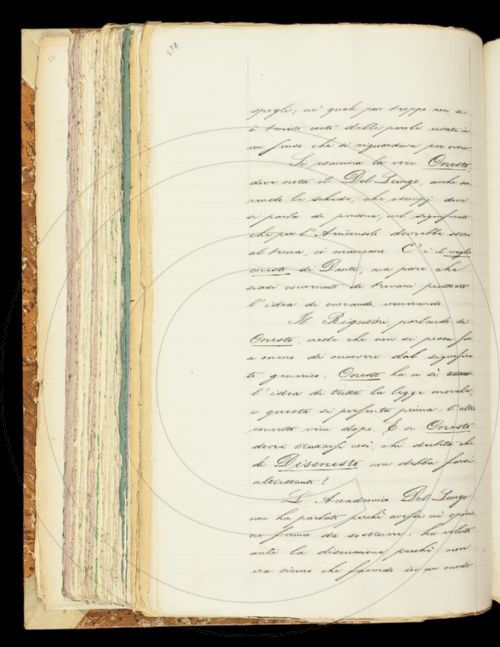 spogli; ne' quali pur troppo non si
è tenuto conto delle parole usate in
un senso che si riguardava per ovvio.
Si esamina la voce Onesto,
dove nota il Del Lungo, anche
le schede, che esempj dove
si parla di persona, nel significato
che per l'Aviamento dovrebbe stare
al tema, ci mancano. C'è il veglio
onesto di Dante, ma pare che
siasi convenuto di trovarci piuttosto
l'idea di onorando, venerando.
Il Rigutini parlando di
Onesto, crede che non si possa far
a meno di muovere dal significa-
to generico; Onesto ha in sè
l'idea di tutta la legge morale,
e questa si presenta prima: l'altro
concetto vien dopo. E se Onesto
dovrà trattarsi così, chi dubita che
di Disonesto non debba farsi
altrettanto?
L'Accademico Del Lungo
non ha parlato perchè avesse un'opinio-
ne ferma da sostenere; ha voluto
anzi la discussione perchè non
era sicuro che facendo in un modo